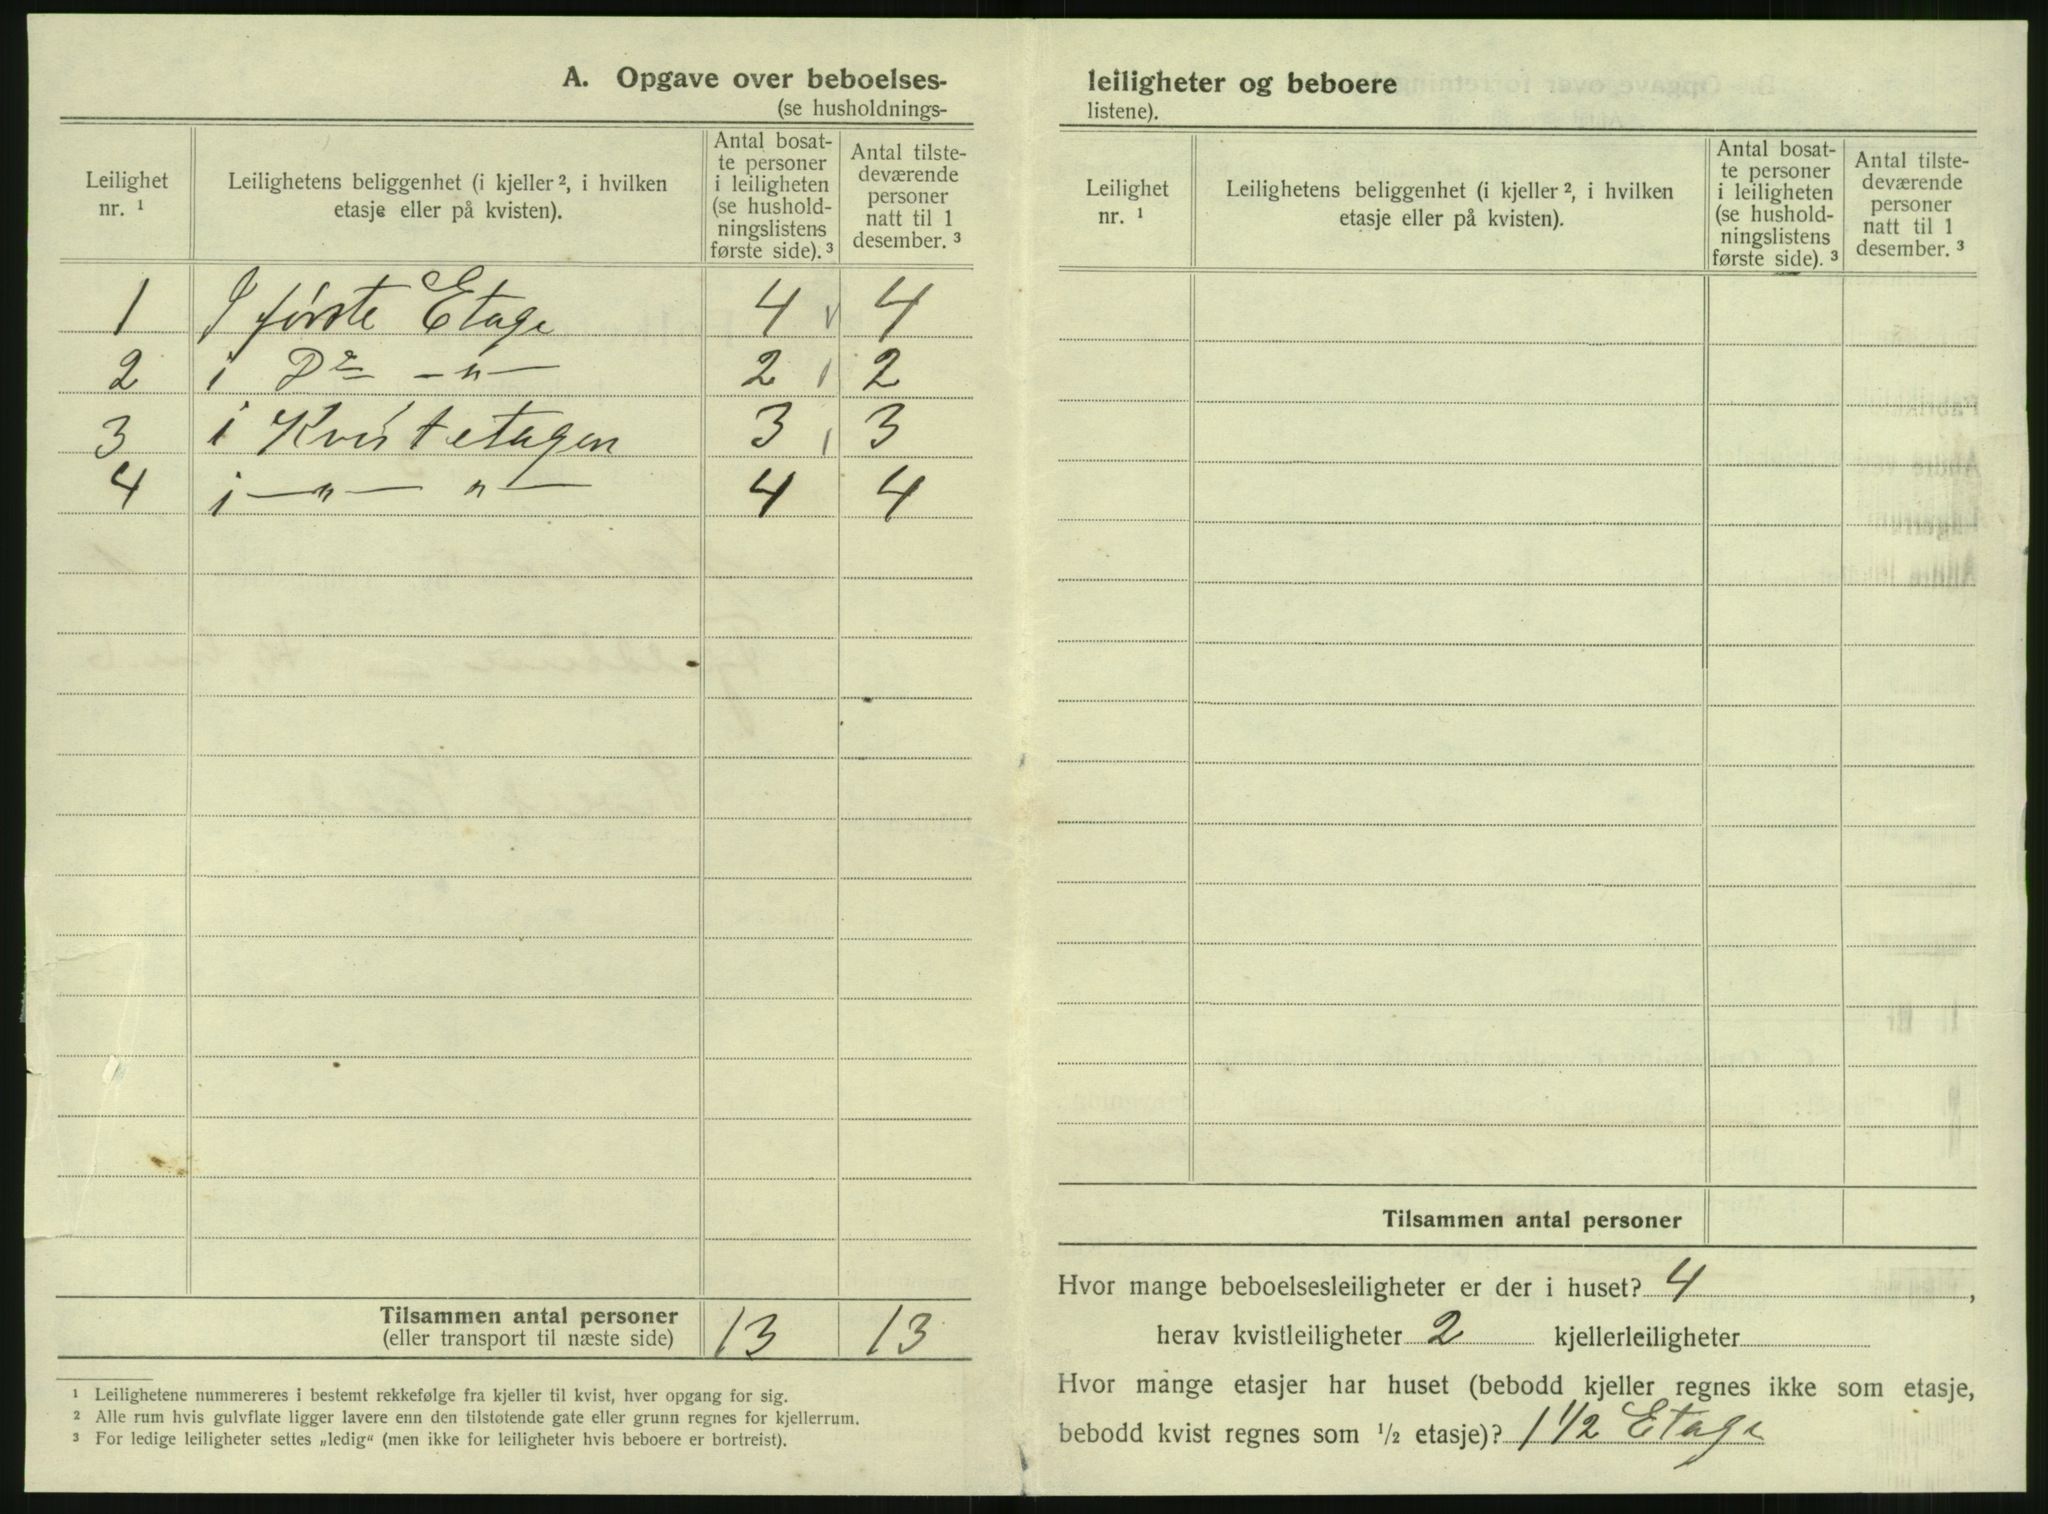 A. Opgave over beboelses-
(se husholdnings-
Leilighet
nr. ¹
Leilighetens beliggenhet (i kjeller ², i hvilken
etasje eller på kvisten).
Antal bosat-
te personer
i leiligheten
(se hushold-
ningslistens
første side). ³
Antal tilste-
deværende
personer
natt til 1
desember. ³
1 I første Etage 4 4
2 i Do -"- 2 2
3 i Kvistetagen 3 3
4 i -"- "- 4 4
Tilsammen antal personer 13 13
(eller transport til næste side)
¹ Leilighetene nummereres i bestemt rekkefølge fra kjeller til kvist, hver opgang for sig.
² Alle rum hvis gulvflate ligger lavere enn den tilstøtende gate eller grunn regnes for kjellerrum.
³ For ledige leiligheter settes „ledig" (men ikke for leiligheter hvis beboere er bortreist).
leiligheter og beboere
listene).
Leilighet
nr. ¹
Leilighetens beliggenhet (i kjeller ², i hvilken
etasje eller på kvisten).
Antal bosat-
te personer
i leiligheten
(se hushold-
ningslistens
første side). ³
Antal tilste-
deværende
personer
natt til 1
desember. ³
Tilsammen antal personer
Hvor mange beboelsesleiligheter er der i huset? 4 ,
herav kvistleiligheter 2 kjellerleiligheter
Hvor mange etasjer har huset (bebodd kjeller regnes ikke som etasje,
bebodd kvist regnes som ½ etasje)? 1 1/2 Etage